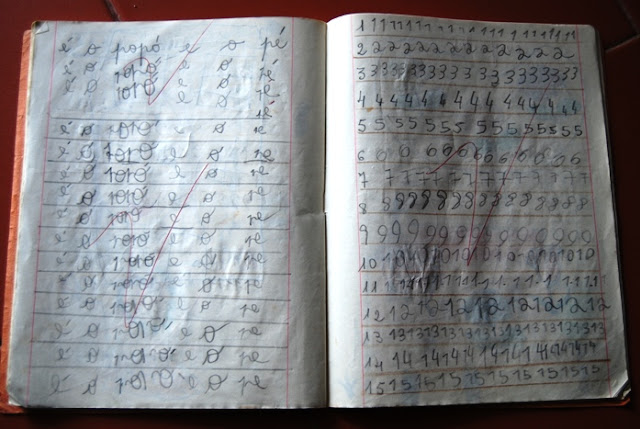 é o popó e o pé
é o popó e o pé
é o popó e o pé
pé
é o popó e o pe
é o popó e o pe
é o popó e o pe
é o popó e o pe
é o popó e o pe
é o popó e o pe
é o popó e o pe
é o popó e o pe
é o popó e o pe
é o popó e o pe
é o popó e o pe
é o popó e o pe
1 1 1 1 1 1 1 1 1 1 1 1 1 1 1 1 1 1 1 1
2 2 2 2 2 2 2 2 2 2 2 2 2 2 2 2
3 3 3 3 3 3 3 3 3 3 3 3 3 3 3 3 3 3 3 3
4 4 4 4 4 4 4 4 4 4 4 4 4 4 4 4
5 5 5 5 5 5 5 5 5 5 5 5 5 5 5 5
6 6 6 6 6 6 6 6 6 6 6 6 6 6
7 7 7 7 7 7 7 7 7 7 7 7 7 7 7 7
8 8 8 8 8 8 8 8 8 8 8 8 8 8 8 8 8
9 9 9 9 9 9 9 9 9 9 9 9 9 9 9 9 9
10 10 10 10 10 10 10 10 10 10 10 10
11 11 11 11 11 11 11 11 11 11 11 11
12 12 12 12 12 12 12 12 12 12
13 13 13 13 13 13 13 13 13 13 13 13 13 13
14 14 14 14 14 14 14 14 14 14 14 14
15 15 15 15 15 15 15 15 15 15 15 15